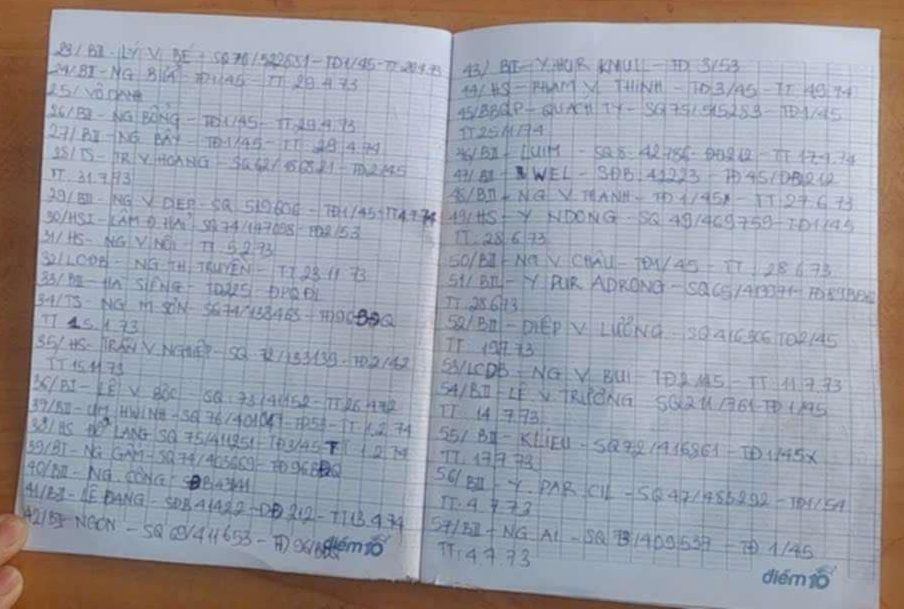 23/ BII - LÝ V BÉ - SQ 76/522631 - TĐ1/45 - TT 29.4.73
24/ BI - NG BỬA - TĐ1/45 - TT 29.4.73
25/ VÔ DANH
26/ BII - NG BÔNG - TĐ1/45 - TT 29.4.73
27/ BII - NG BẢY - TĐ1/45 - TT 29.4.74
28/ TS - TR V HOÀNG - SQ 62/156821 - TĐ2/45
TT. 31.7.73
29/ BII - NG V DIEP - SQ 519606 - TĐ1/45 - TT 4.7.74
30/ HS1 - LÂM Đ HẢI - SQ 74/147098 - TĐ2/53
31/ HS - NG V NÔI - TT 5.2.73
32/ LCĐB - NG TH TRUYỀN - TT 23.11.73
33/ BII - HA SIÊNG - TĐ225 - ĐPQ ĐL
34/ TS - NG M SƠN - SQ 74/138463 - TĐ96 BĐQ
TT 15.1.73
35/ HS - TRẦN V NGHIỆP - SQ 72/133139 - TĐ2/42
TT 15.11.73
36/ BI - LÊ V BỐC - SQ 73/141152 - TT 26.4.72
37/ BII - UM HWINH - SQ 76/401047 - TĐ53 - TT 1.2.74
38/ HS LANG SQ 75/411251 - TĐ3/45 - TT 1.2.74
39/ BI - NG GẤM - SQ 74/405669 - TĐ96 BĐQ
40/ BII - NG. CÔNG - SĐB
41/ BII - LÊ ĐANG - SĐB 41422 - ĐĐ 212 - TT 13.4.74
42/ BII NGON - SQ 69/411653 - TĐ 96/BĐQ
điểm 10
43/ BI - Y HUR KNUL - TĐ 3/53
44/ HS - PHAM V THINH - TĐ3/45 - TT 4.9.74
45/ BĐQP - QUACH TY - SQ 75/515283 - TĐ1/45
TT 25/1/74
46/ BII - LUIM - SQ 8.42786 - ĐĐ212 - TT 17.4.74
47/ BI - WEL - SĐB: 41223 - TĐ 45/ĐB 212
48/ BII - NG V THANH - TĐ 1/45 - TT 27.6.73
49/ HS - Y NDONG - SQ 49/469759 - TĐ1/45
TT. 28.6.73
50/ BII - NG V CHÂU - TĐ1/45 - TT. 28.6.73
51/ BII - Y PUR ADRONG - SQ 65/
TT. 28.6.73
52/ BII - DIỆP V LƯỜNG - SQ 416906 TĐ2/45
TT. 19.7.73
53/ LCĐB - NG V BUI - TĐ2/45 - TT. 11.7.73
54/ BII - LÊ V TRƯỜNG SQ 211/761 - TĐ 1/45
TT. 14.7.73
55/ BII - KLIEU - SQ 72/416861 - TĐ 1/45x
TT. 17.7.73
56/ BII - Y. PAR CIL - SQ 47/485292 - TĐ1/54
TT: 4.7.73
57/ BII - NG AL - SQ 73/409537 - TĐ 1/45
TT: 4.7.73
điểm 10